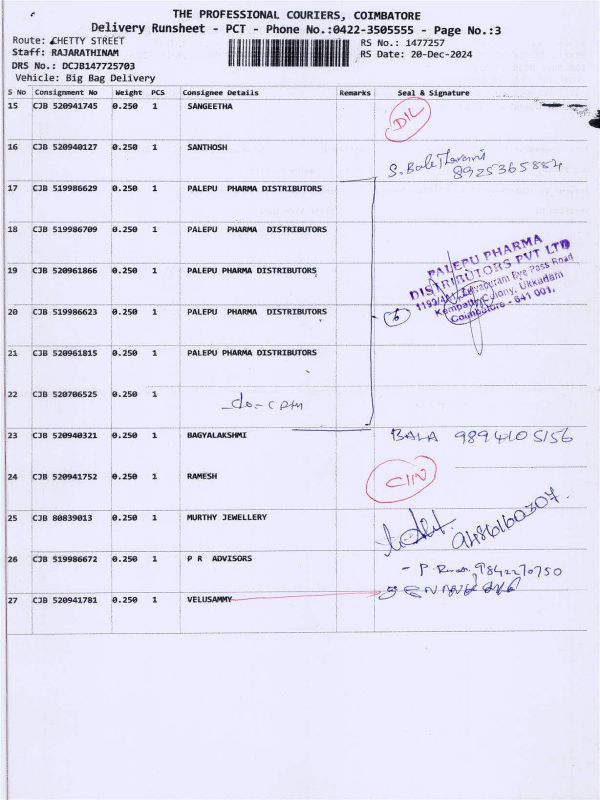 THE PROFESSIONAL COURIERS, COIMBATORE
Delivery Runsheet - PCT - Phone No.:0422-3505555 - Page No.:3
Route: CHETTY STREET
RS No.: 1477257
Staff: RAJARATHINAM
RS Date: 20-Dec-2024
DRS No.: DCJB147725703
Vehicle: Big Bag Delivery
S No Consignment No Weight PCS Consignee Details Remarks Seal & Signature
15 CJB 520941745 0.250 1 SANGEETHA DIL
16 CJB 520940127 0.250 1 SANTHOSH
8925365884
17 CJB 519986629 0.250 1 PALEPU PHARMA DISTRIBUTORS
18 CJB 519986709 0.250 1 PALEPU PHARMA DISTRIBUTORS
19 CJB 520961866 0.250 1 PALEPU PHARMA DISTRIBUTORS
20 CJB 519986623 0.250 1 PALEPU PHARMA DISTRIBUTORS
21 CJB 520961815 0.250 1 PALEPU PHARMA DISTRIBUTORS
PALEPU PHARMA
DISTRIBUTORS PVT LTD
Bye Pass Road
Colony, Ukkadam
Coimbatore - 641 001.
6
22 CJB 520706525 0.250 1
23 CJB 520940321 0.250 1 BAGYALAKSHMI BALA 9894105156
24 CJB 520941752 0.250 1 RAMESH CIN
25 CJB 80839013 0.250 1 MURTHY JEWELLERY 9486160307
26 CJB 519986672 0.250 1 P R ADVISORS 9842270750
27 CJB 520941781 0.250 1 VELUSAMMY